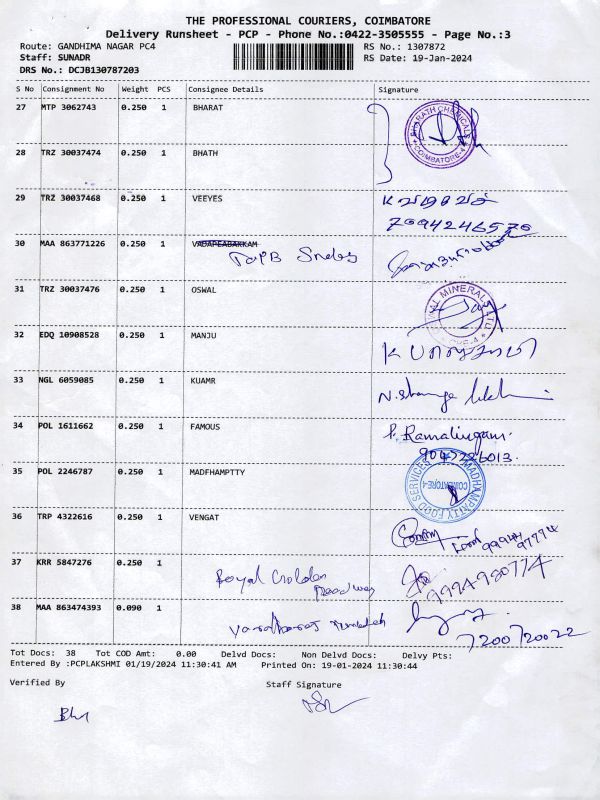 THE PROFESSIONAL COURIERS, COIMBATORE
Delivery Runsheet - PCP - Phone No.:0422-3505555 - Page No.:3
Route: GANDHIMA NAGAR PC4 RS No.: 1307872
Staff: SUNADR RS Date: 19-Jan-2024
DRS No.: DCJB130787203
S No Consignment No Weight PCS Consignee Details Signature
27 MTP 3062743 0.250 1 BHARAT
BHARATH CHEMICALS
COIMBATORE-4
28 TRZ 30037474 0.250 1 BHATH
29 TRZ 30037468 0.250 1 VEEYES
7094246570
30 MAA 863771226 0.250 1 VADAPEABAKKAM
31 TRZ 30037476 0.250 1 OSWAL
32 EDQ 10908528 0.250 1 MANJU
33 NGL 6059085 0.250 1 KUAMR
34 POL 1611662 0.250 1 FAMOUS P. Ramalingam.
9047226013.
35 POL 2246787 0.250 1 MADFHAMPTTY
MADHAMPATTY FOOD SERVICES
COIMBATORE-4
36 TRP 4322616 0.250 1 VENGAT
99944 97794
37 KRR 5847276 0.250 1
Royal Golden
9994980774
38 MAA 863474393 0.090 1
7200720022
Tot Docs: 38 Tot COD Amt: 0.00 Delvd Docs: Non Delvd Docs: Delvy Pts:
Entered By :PCPLAKSHMI 01/19/2024 11:30:41 AM Printed On: 19-01-2024 11:30:44
Verified By Staff Signature